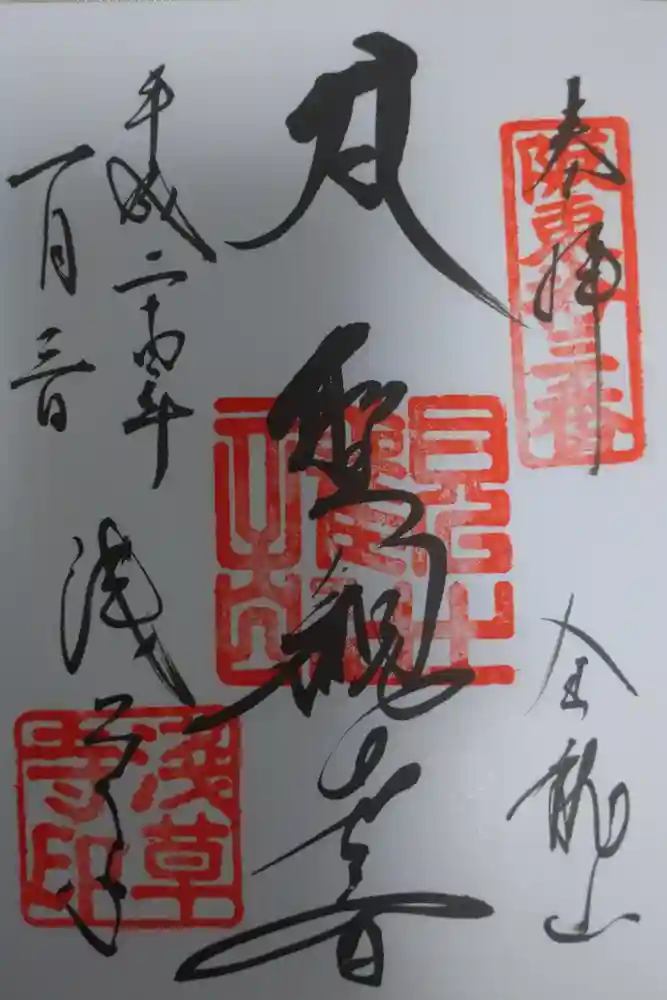 奉拝
坂東十三番
金龍山
聖観音
平成二十四年
一月三日
浅草寺
浅草
寺印